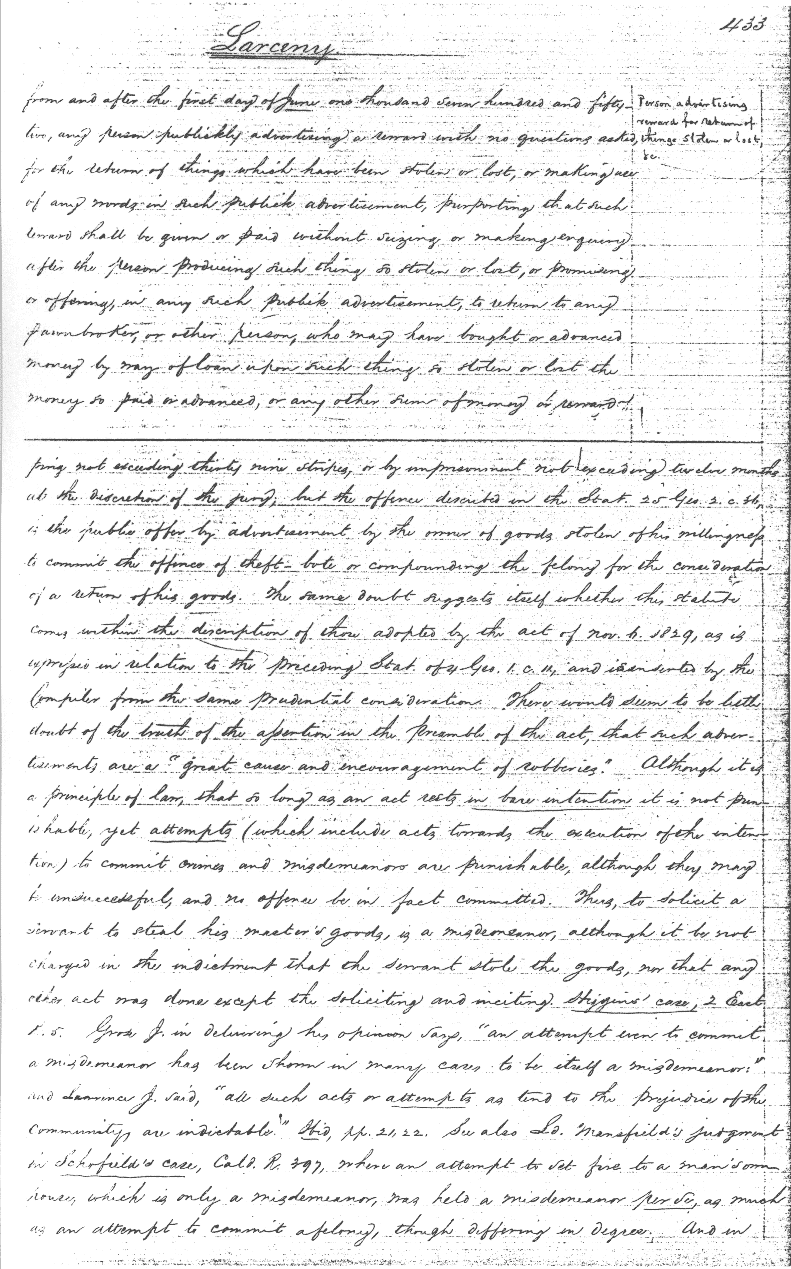 433
Larceny.
from and after the first day of June one thousand seven hundred and fifty-
two, any person publickly advertising a reward with no questions asked,
for the return of things which have been stolen or lost, or making use
of any words in such publick advertisement, purporting that such
reward shall be given or paid without seizing or making enquiry
after the person producing such thing so stolen or lost, or promising
or offering, in any such publik advertisement, to return to any
pawnbroker, or other person, who may have bought or advanced
money by way of loan upon such thing so stolen or lost the
money so paid or advanced, or any other sum of money or reward
Person advertising
reward for return of
things stolen or lost,
&c.
ping not exceeding thirty nine stripes, or by imprisonment not exceeding twelve months
at the discretion of the jury; but the offence described in the Stat. 25 Geo. 2. c. 36,
is the public offer by advertisement by the owner of goods stolen of his willingness
to commit the offence of theft-bote or compounding the felony for the consideration
of a return of his goods. The same doubt suggests itself whether this statute
comes within the description of those adopted by the act of nov. 6. 1829, as is
expressed in relation to the preceding Stat. of 4 Geo. 1. c. 11, and is inserted by the
Compiler from the same prudential consideration. There would seem to be little
doubt of the truth of the assertion in the Preamble of the act, that such adver-
tisements are a "great cause and encouragement of robberies." Although it is
a principle of law, that so long as an act rests in bare intention it is not pun-
ishable, yet attempts (which include acts towards the execution of the inten-
tion) to commit crimes and misdemeanors are punishable, although they may
be unsuccessful, and no offence be in fact committed. Thus, to solicit a
servant to steal his master's goods, is a misdemeanor, although it be not
charged in the indictment that the servant stole the goods, nor that any
other act was done except the soliciting and inciting. Higgins' case, 2 East
R. 5. Grose J. in delivering his opinion says, "an attempt even to commit
a misdemeanor has been shown in many cases to be itself a misdemeanor:"
and Lawrence J. said, "all such acts or attempts as tend to the prejudice of the
community, are indictable." Ibid, pp. 21, 22. See also Ld. Mansfield's judgment
in Schofield's case, Cald. R. 397, where an attempt to set fire to a man's own
house, which is only a misdemeanor, was held a misdemeanor per se, as much
as an attempt to commit a felony, though differing in degree. And in